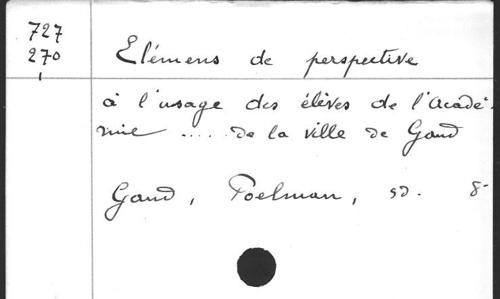 727
270
Elémens de perspective
à l'usage des élèves de l'Acadé-
mie .... de la ville de Gand
Gand, Poelman, sd. 8-